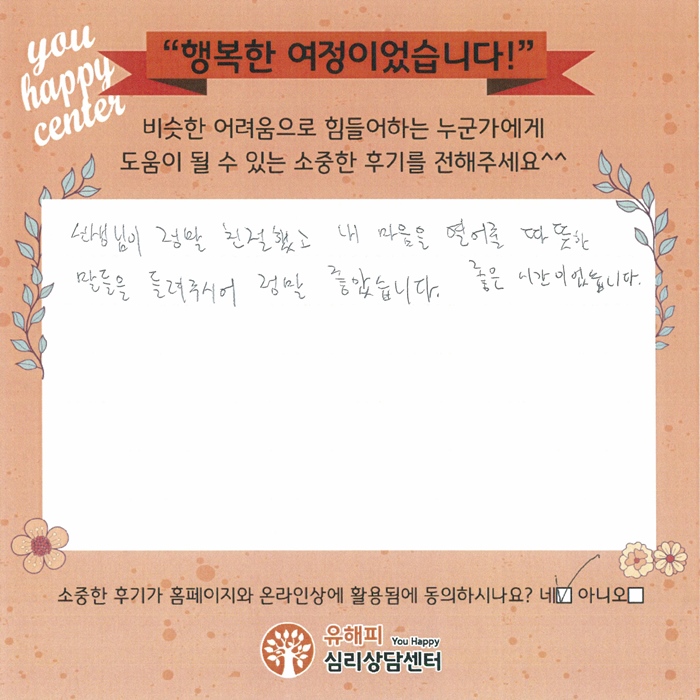 you
happy
center
“행복한 여정이었습니다!”
비슷한 어려움으로 힘들어하는 누군가에게
도움이 될 수 있는 소중한 후기를 전해주세요^^
선생님이 정말 친절했고 내 마음을 열어줄 따뜻한
말들을 들려주시어 정말 좋았습니다. 좋은 시간이었습니다.
소중한 후기가 홈페이지와 온라인상에 활용됨에 동의하시나요? 네☑ 아니오☐
유해피 You Happy
심리상담센터